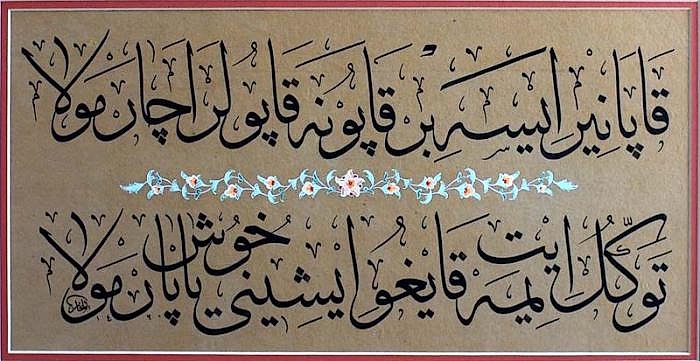 قاپانير ايسه بر قاپو نه قاپولر اچار مولا
توكل ايت يمه قايغو ايشينى خوش ياپار مولا